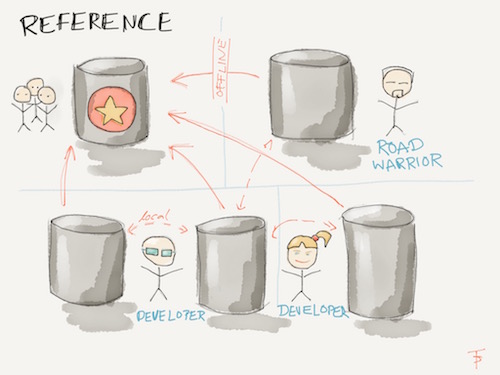 REFERENCE
OFFLINE
ROAD
WARRIOR
local
DEVELOPER
DEVELOPER